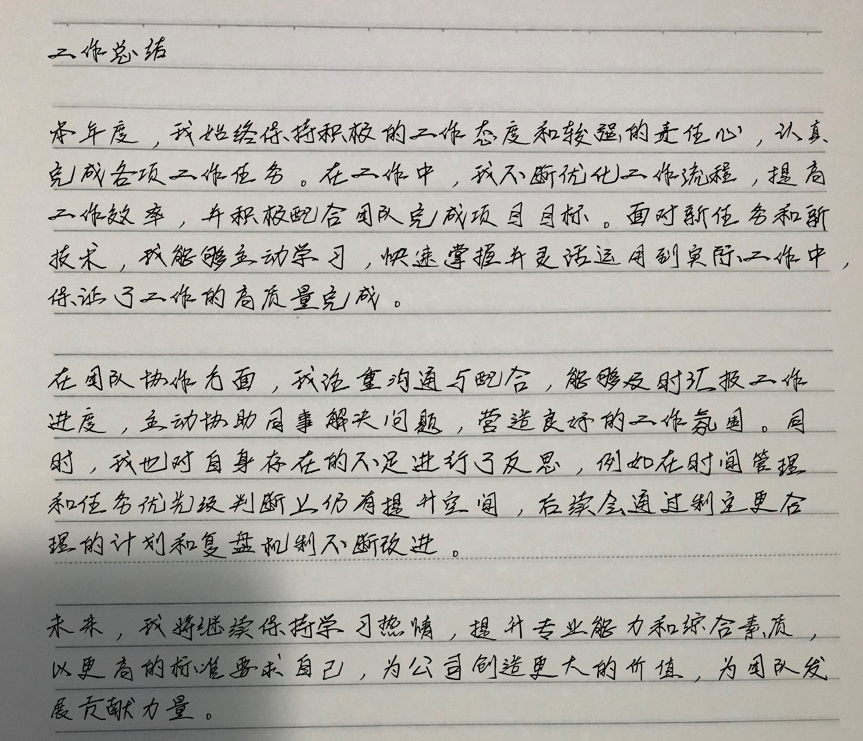 工作总结
本年度，我始终保持积极的工作态度和较强的责任心，认真
完成各项工作任务。在工作中，我不断优化工作流程，提高
工作效率，并积极配合团队完成项目目标。面对新任务和新
技术，我能够主动学习，快速掌握并灵活运用到实际工作中，
保证了工作的高质量完成。
在团队协作方面，我注重沟通与配合，能够及时汇报工作
进度，主动协助同事解决问题，营造良好的工作氛围。同
时，我也对自身存在的不足进行了反思，例如在时间管理
和任务优先级判断上仍有提升空间，后续会通过制定更合
理的计划和复盘机制不断改进。
未来，我将继续保持学习热情，提升专业能力和综合素质，
以更高的标准要求自己，为公司创造更大的价值，为团队发
展贡献力量。